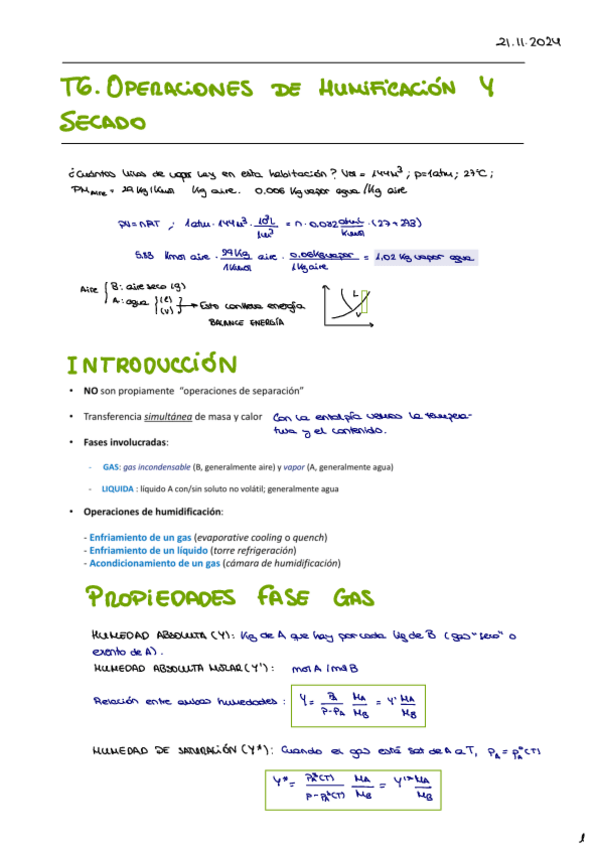 21.11.2024
T6. OPERACIONES DE HUMIFICACIÓN Y
SECADO
¿Cuántos kilos de vapor hay en esta habitación? Vol = 144m³; p=1atm; 27ºC;
PM aire = 29 kg/kmol kg aire. 0.006 kg vapor agua/kg aire
PV=nRT ; 1atm·144m³· 10³L/1m³ = n·0.082 atm·L/kmol ·(27+273)
5.83 kmol aire · 29kg/1kmol aire · 0.006kg vapor/1kg aire = 1.02 kg vapor agua
Aire { B: aire seco (g)
A: agua { (l) (v) } → Esto conlleva energía
BALANCE ENERGÍA
L
V
INTRODUCCIÓN
• NO son propiamente “operaciones de separación”
• Transferencia simultánea de masa y calor Con la entalpía vemos la tempera-
tura y el contenido.
• Fases involucradas:
- GAS: gas incondensable (B, generalmente aire) y vapor (A, generalmente agua)
- LIQUIDA : líquido A con/sin soluto no volátil; generalmente agua
• Operaciones de humidificación:
- Enfriamiento de un gas (evaporative cooling o quench)
- Enfriamiento de un líquido (torre refrigeración)
- Acondicionamiento de un gas (cámara de humidificación)
PROPIEDADES FASE GAS
HUMEDAD ABSOLUTA (Y): Kg de A que hay por cada kg de B (gas "seco" o
exento de A).
HUMEDAD ABSOLUTA MOLAR (Y'): mol A / mol B
Relación entre ambas humedades: Y = PA/(P-PA) · MA/MB = Y' MA/MB
HUMEDAD DE SATURACIÓN (Y*): Cuando el gas está sat de A a T, PA = PA*(T)
Y* = PA*(T)/(P-PA*(T)) · MA/MB = Y'* MA/MB
1